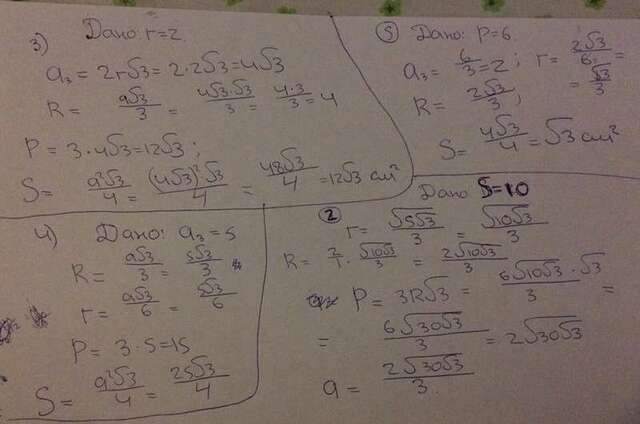 3) Дано: r=2.
a₃ = 2r√3 = 2·2√3 = 4√3
R = a√3/3 = 4√3·√3/3 = 4·3/3 = 4
P = 3·4√3 = 12√3;
S = a²√3/4 = (4√3)²√3/4 = 48√3/4 = 12√3 см²
5) Дано: P=6.
a₃ = 6/3 = 2; r = 2√3/6 =
= √3/3
R = 2√3/3;
S = 4√3/4 = √3 см²
4) Дано: a₃ = 5
R = a√3/3 = 5√3/3
r = a√3/6 = 5√3/6
P = 3·5 = 15
S = a²√3/4 = 25√3/4
2 Дано S=10
r = √(5√3)/3 = √(10√3)/3
R = 2/1 · √(10√3)/3 = 2√(10√3)/3
P = 3R√3 = 6√(10√3)·√3/3 =
= 6√(30√3)/3 = 2√(30√3)
a = 2√(30√3)/3.